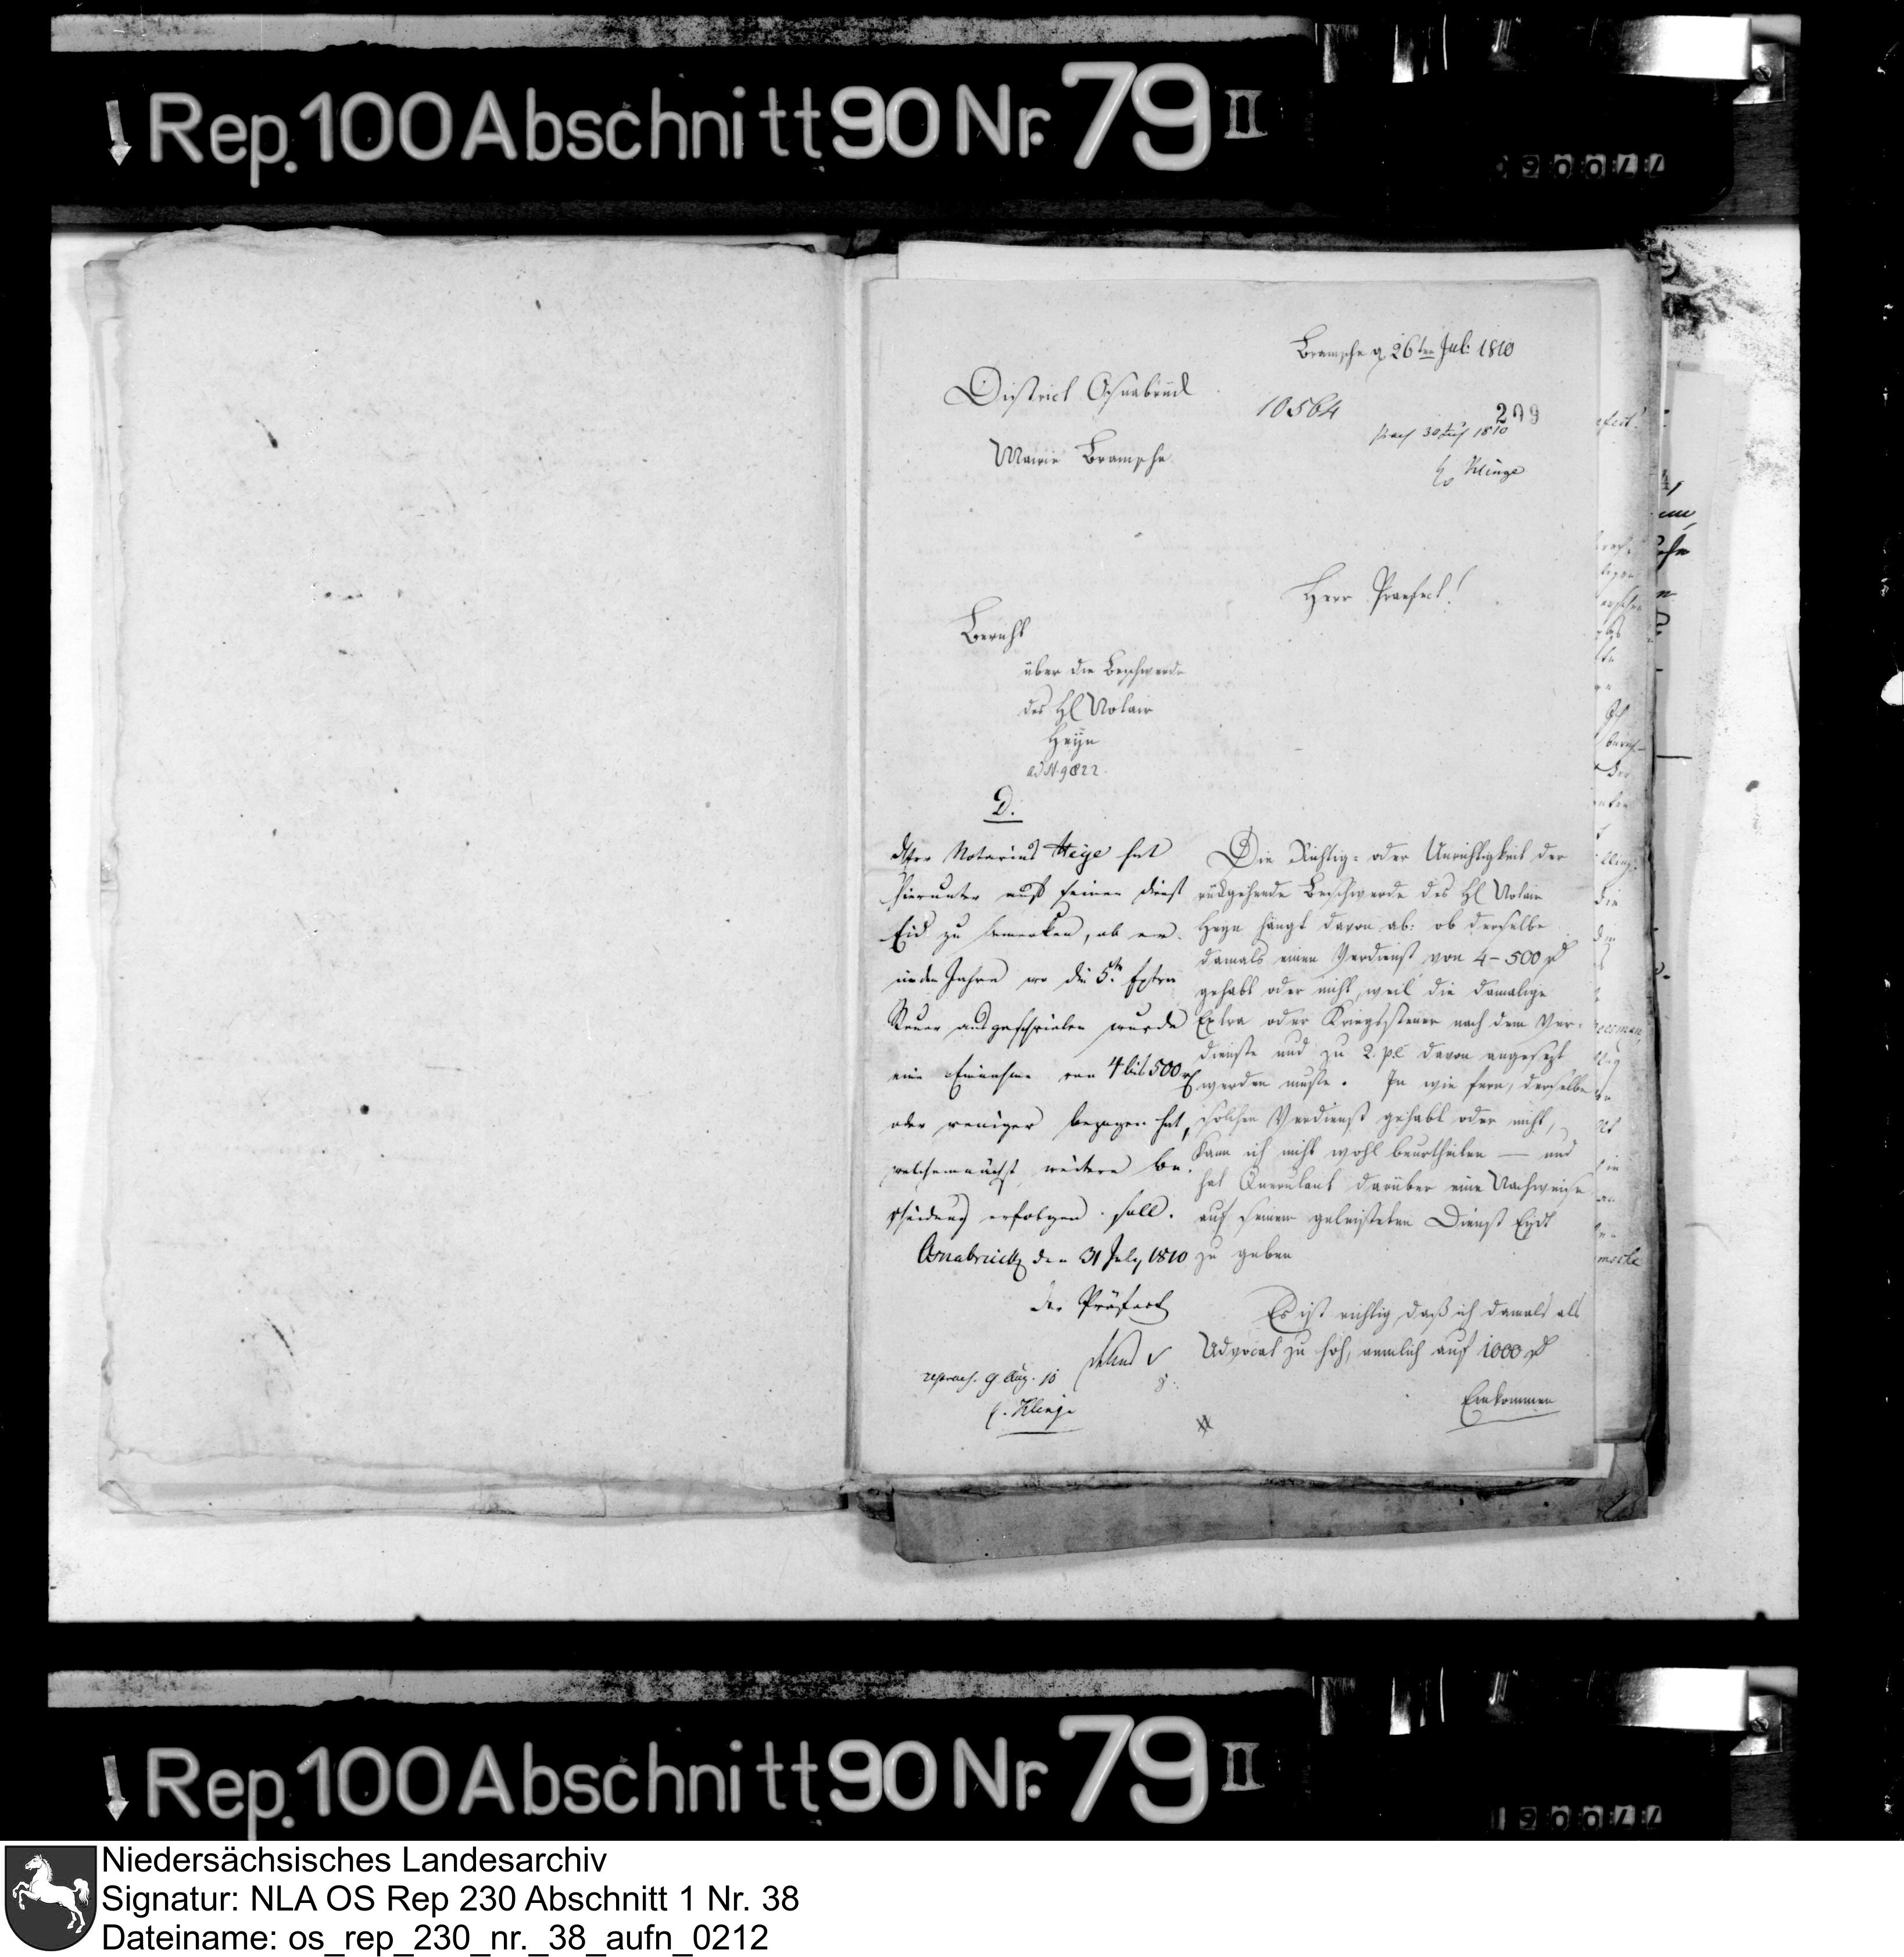 Rep. 100 Abschnitt 90 Nr. 79 II
Bramsche d 26ten Jul: 1810
District Osnabrück
10564
209
praes 30 July 1810
Klinge
Mairie Bramsche
Herr Praefect!
Bericht
über die Beschwerde
des H Notair
Heye
ad N. 9822.
D.
Herr Notarius Heye hat
hierunter auf seinen Dienst
Eid zu bemerken, ob er
in den Jahre wo die 5te Extra
Steuer ausgeschrieben wurde
eine Einnahme von 4 bis 500 rt
oder weniger bezogen hat,
welchemnächst weitere Be-
scheidung erfolgen soll.
Osnabrück den 31 July 1810
der Präfect
repraes. 9 Aug. 10
Klinge
Die Richtig- oder Unrichtigkeit der
rükgehende Beschwerde des H Notair
Heye hängt davon ab: ob derselbe
damals einen Verdienst von 4-500 rt
gehabt oder nicht, weil die damalige
Extra oder Kriegssteuer nach dem Ver-
dienste und zu 2. pC davon angesezt
werden muste. In wie fern, derselbe
solchen Verdienst gehabt oder nicht,
kann ich nicht wohl beurtheilen — und
hat Querulant darüber eine Nachweise
auf seinem geleisteten Dienst Eydt
zu geben
Es ist richtig, daß ich damals als
Advocat zu hoh, nemlich auf 1000 rt
Einkommen
Rep. 100 Abschnitt 90 Nr. 79 II
190077
Niedersächsisches Landesarchiv
Signatur: NLA OS Rep 230 Abschnitt 1 Nr. 38
Dateiname: os_rep_230_nr._38_aufn_0212